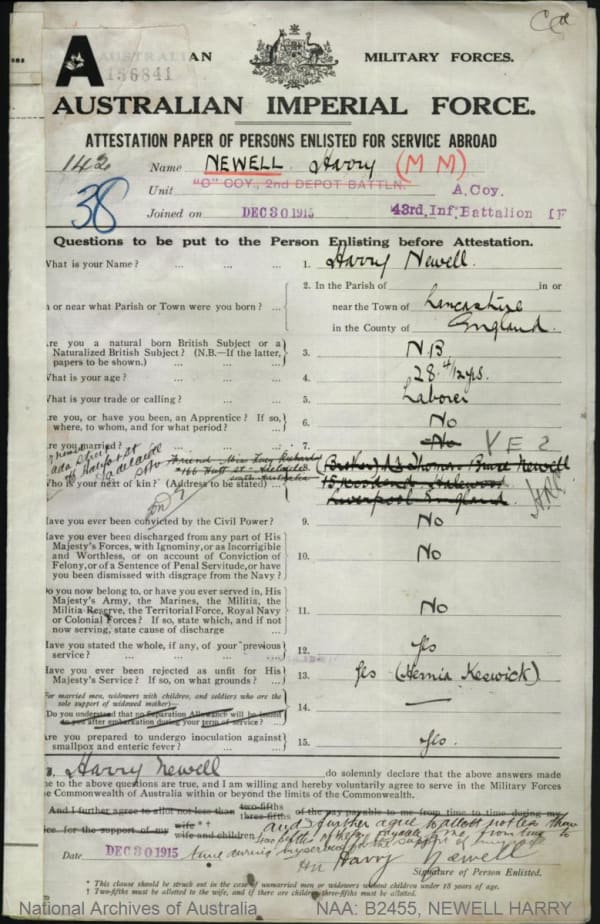 A
AUSTRALIAN MILITARY FORCES.
136841
AUSTRALIAN IMPERIAL FORCE.
ATTESTATION PAPER OF PERSONS ENLISTED FOR SERVICE ABROAD
142 Name NEWELL Harry (M M)
38
Unit "C" COY., 2nd DEPOT BATTLN. A. Coy.
Joined on DEC 30 1915 43rd. Inf. Battalion IF
Questions to be put to the Person Enlisting before Attestation.
What is your Name? ... ... ... 1. Harry Newell.
2. In the Parish of in or
n or near what Parish or Town were you born? ... near the Town of Lancashire
in the County of England.
Are you a natural born British Subject or a
Naturalized British Subject? (N.B.—If the latter, 3. N.B
papers to be shown.)
What is your age? ... ... ... 4. 28 4/12 yrs.
What is your trade or calling? ... ... 5. Laborer
Are you, or have you been, an Apprentice? If so,
where, to whom, and for what period? ... 6. No
Are you married? 7. No YES
Friend Miss
Hutt St Adelaide
South Australia
Who is your next of kin? (Address to be stated) ... (Brother) Thomas Newell
Halewood
Liverpool England
Have you ever been convicted by the Civil Power? 9. No
Have you ever been discharged from any part of His
Majesty's Forces, with Ignominy, or as Incorrigible
and Worthless, or on account of Conviction of 10. No
Felony, or of a Sentence of Penal Servitude, or have
you been dismissed with disgrace from the Navy?
Do you now belong to, or have you ever served in, His
Majesty's Army, the Marines, the Militia, the
Militia Reserve, the Territorial Force, Royal Navy 11. No
or Colonial Forces? If so, state which, and if not
now serving, state cause of discharge ...
Have you stated the whole, if any, of your previous
service? ... ... ... 12. Yes
Have you ever been rejected as unfit for His
Majesty's Service? If so, on what grounds? ... 13. Yes (Hernia Keswick)
For married men, widowers with children, and soldiers who are the
sole support of widowed mother)
Do you understand that no Separation Allowance will be issued 14. —
to you after embarkation during your term of service?
Are you prepared to undergo inoculation against
smallpox and enteric fever? ... ... 15. Yes.
I, Harry Newell do solemnly declare that the above answers made
me to the above questions are true, and I am willing and hereby voluntarily agree to serve in the Military Forces
the Commonwealth of Australia within or beyond the limits of the Commonwealth.
And I further agree to allot not less than two-fifths
three-fifths of the pay payable to me from time to time during my
ice for the support of my wife * †
wife and children
and I further agree to allott not less than
two fifths of the pay payable to me from time to
time during my service for the support of my wife
Date DEC 30 1915 Harry Newell
Signature of Person Enlisted.
* This clause should be struck out in the case of unmarried men or widowers without children under 18 years of age.
† Two-fifths must be allotted to the wife, and if there are children three-fifths must be allotted.
National Archives of Australia NAA: B2455, NEWELL HARRY